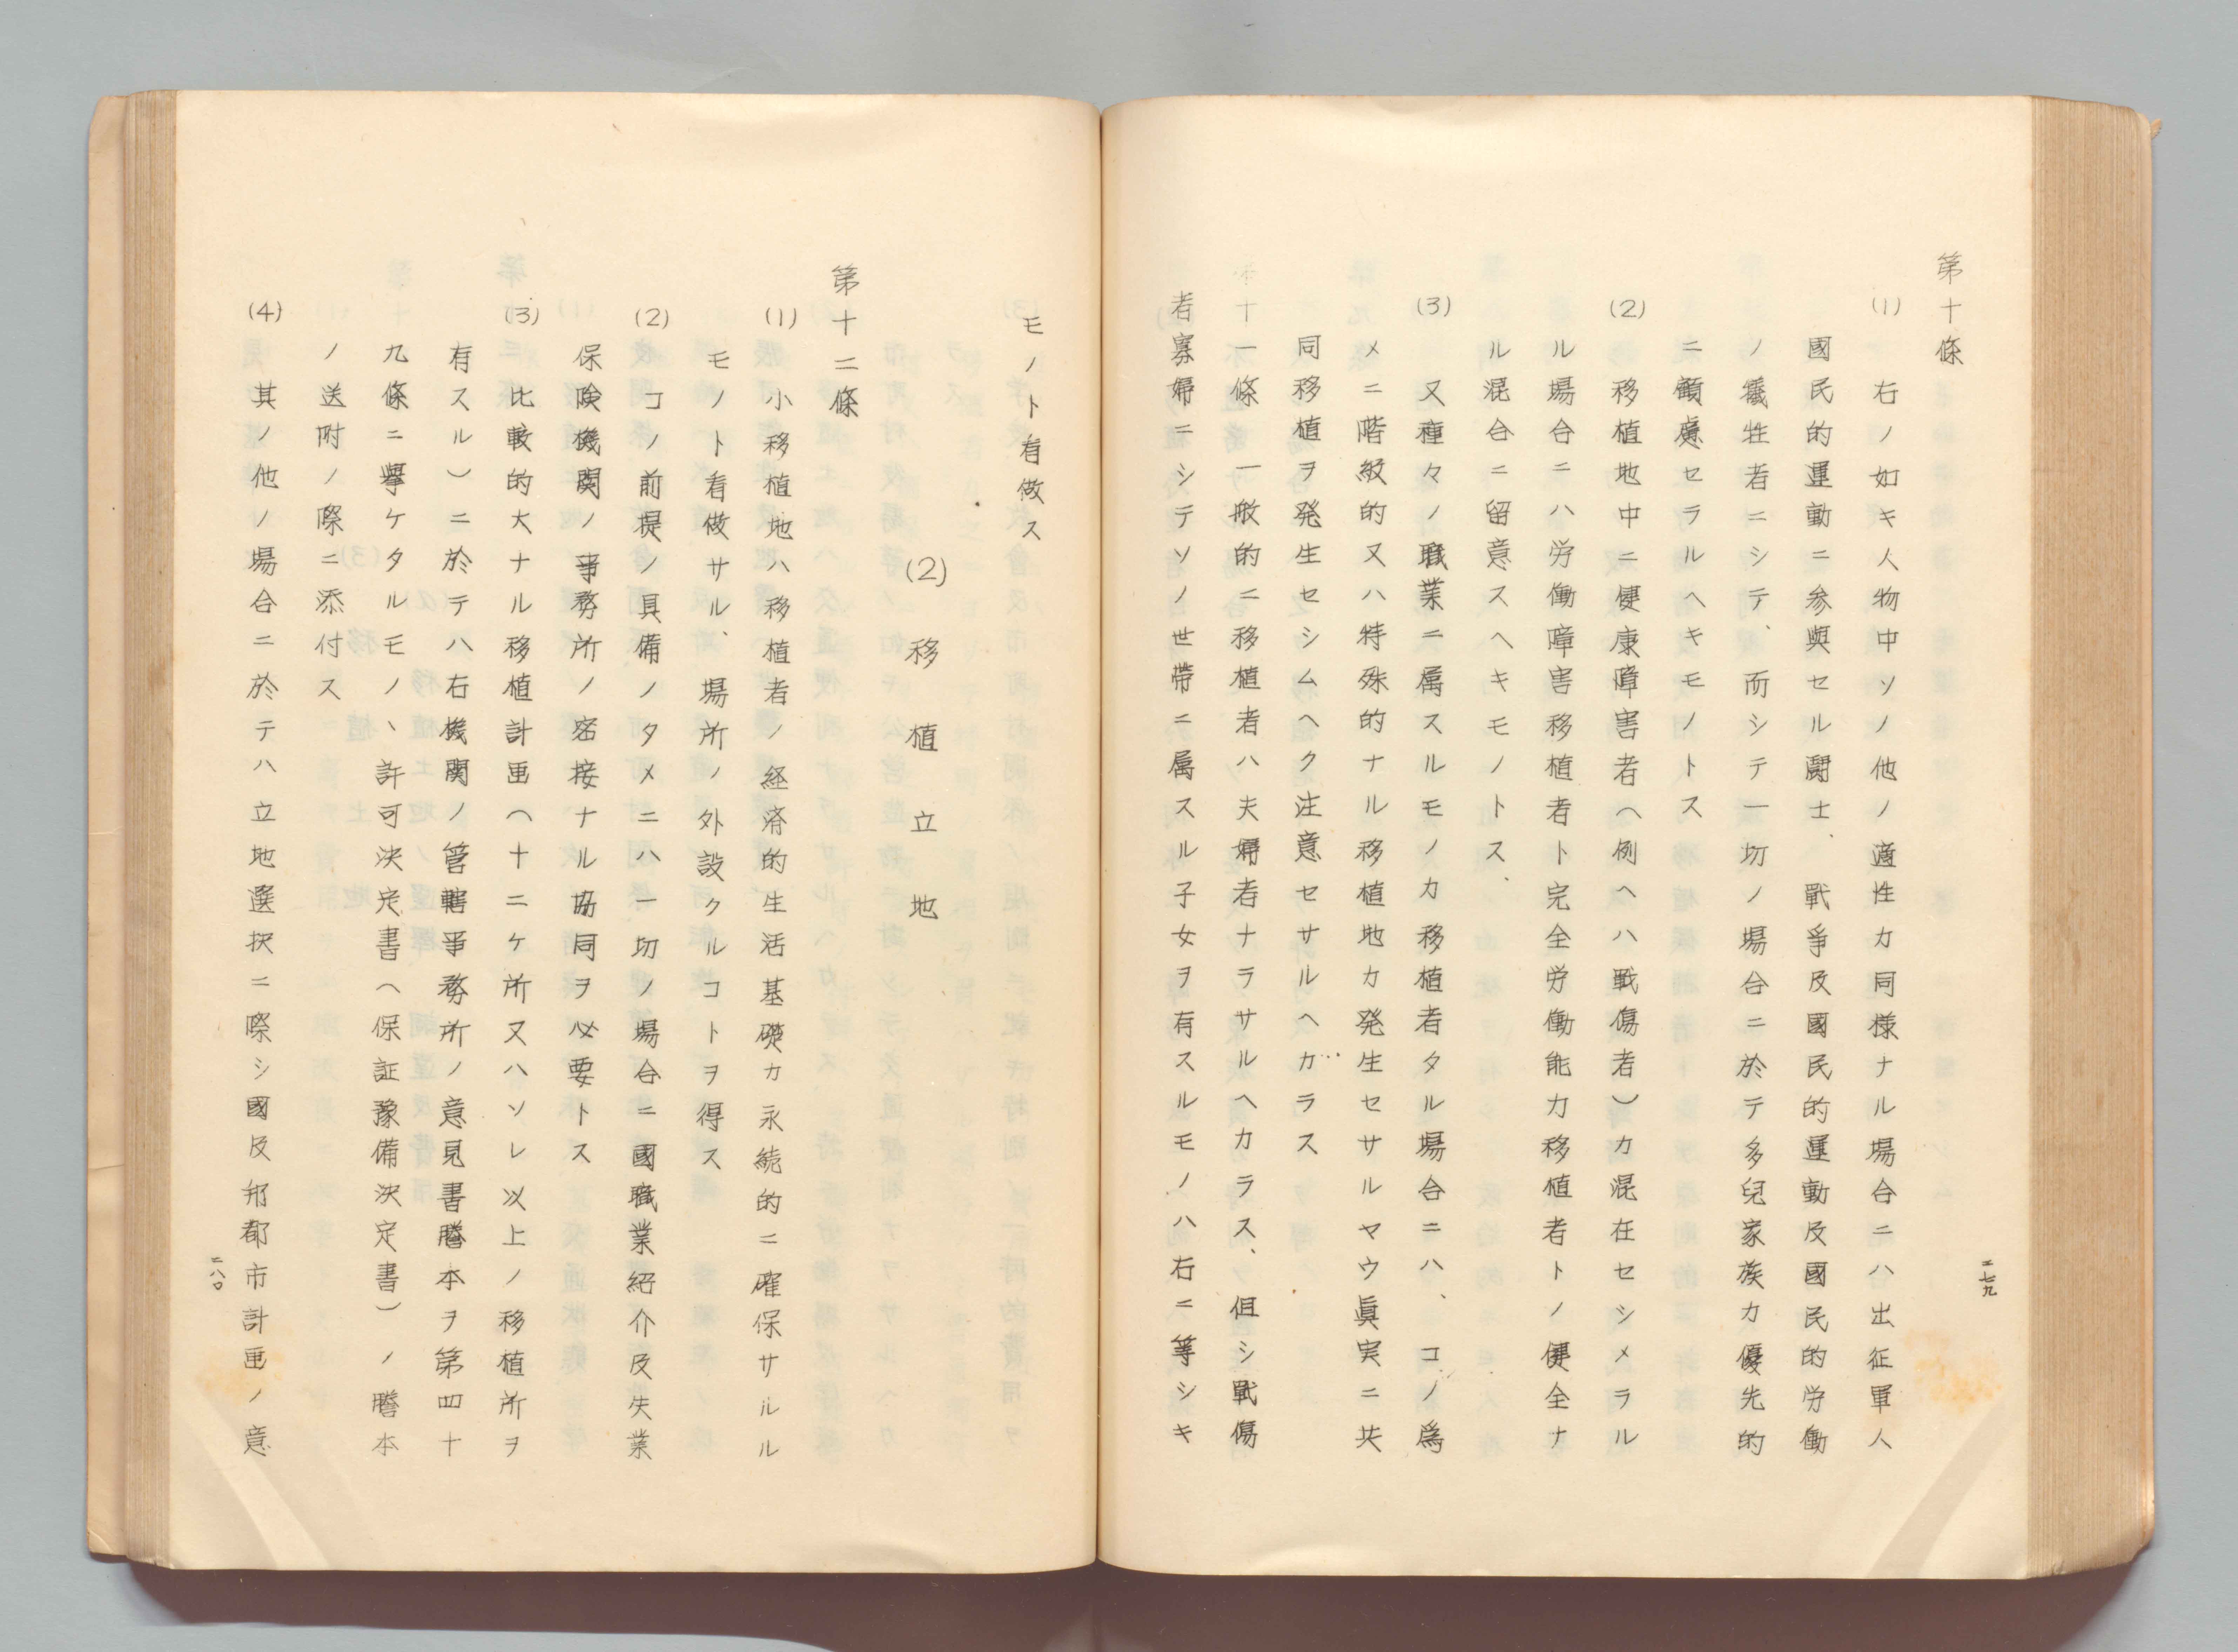 第十條
(1) 右ノ如キ人物中ソノ他ノ適性カ同様ナル場合ニハ出征軍人
國民的運動ニ参與セル闘士、戰爭及國民的運動及國民的労働
ノ犠牲者ニシテ、而シテ一切ノ場合ニ於テ多兒家族カ優先的
ニ顧慮セラルヘキモノトス
(2) 移植地中ニ健康障害者(例ヘハ戰傷者)カ混在セシメラル
ル場合ニハ労働障害移植者ト完全労働能力移植者トノ健全ナ
ル混合ニ留意スヘキモノトス、
(3) 又種々ノ職業ニ属スルモノカ移植者タル場合ニハ、コノ爲
メニ階級的又ハ特殊的ナル移植地カ発生セサルヤウ眞実ニ共
同移植ヲ発生セシムヘク注意セサルヘカラス
第十一條 一般的ニ移植者ハ夫婦者ナラサルヘカラス、但シ戰傷
者寡婦ニシテソノ世帶ニ属スル子女ヲ有スルモノハ右ニ等シキ
二七九
モノト看做ス
(2) 移植立地
第十二條
(1) 小移植地ハ移植者ノ経済的生活基礎カ永続的ニ確保サルル
モノト看做サル、場所ノ外設クルコトヲ得ス
(2) コノ前提ノ具備ノタメニハ一切ノ場合ニ國職業紹介及失業
保険機関ノ事務所ノ密接ナル協同ヲ必要トス
(3) 比較的大ナル移植計画(十二ケ所又ハソレ以上ノ移植所ヲ
有スル)ニ於テハ右機関ノ管轄事務所ノ意見書謄本ヲ第四十
九條ニ擧ケタルモノヽ許可決定書(保証豫備決定書)ノ謄本
ノ送附ノ際ニ添付ス
(4) 其ノ他ノ場合ニ於テハ立地選択ニ際シ國及邦都市計画ノ意
二八〇